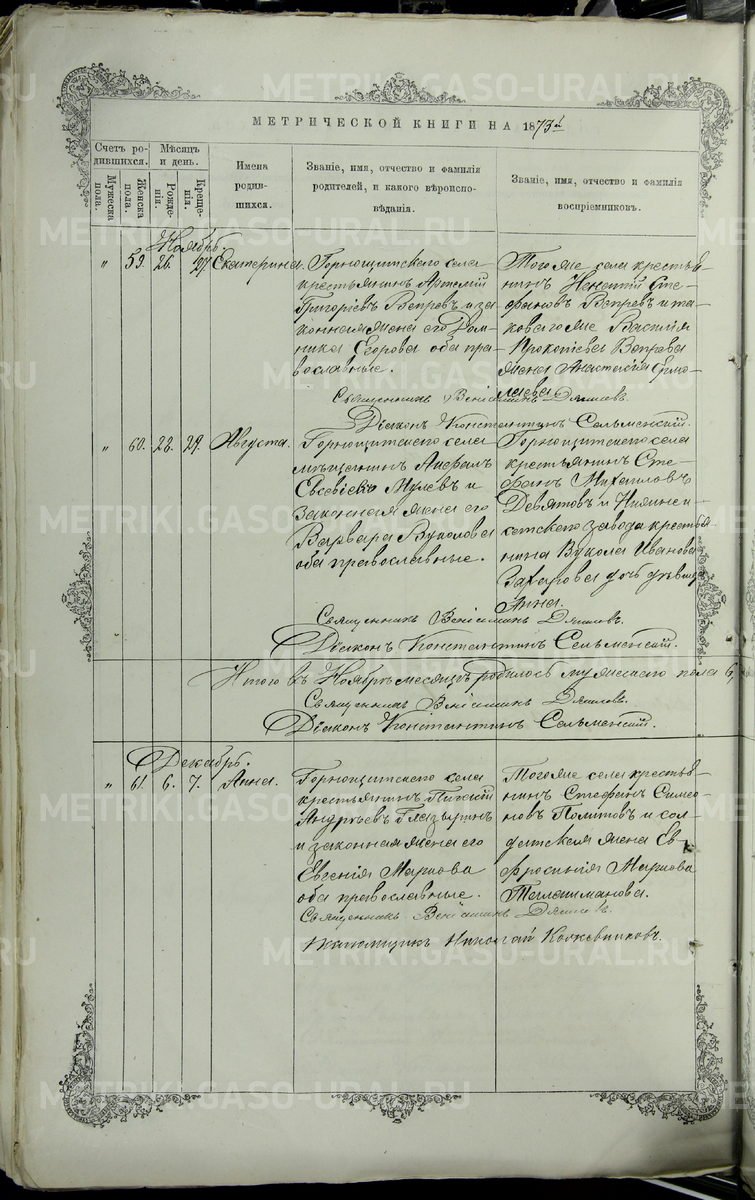 МЕТРИЧЕСКОЙ КНИГИ НА 1873й
Счетъ родившихся.
Мѣсяцъ и день.
Имена родившихся.
Званіе, имя, отчество и фамилія родителей, и какого вѣроисповѣданія.
Званіе, имя, отчество и фамилія воспріемниковъ.
Мужеска пола.
Женска пола.
Рожденія.
Крещенія.
Ноябрь.
" 59. 26. 27. Екатерина.
Горнощитскаго села
крестьянинъ Артемій
Григоріевъ Вепревъ и за-
конная жена его Дом-
ника Егорова оба пра-
вославные.
Того же села крестья-
нинъ Сте-
фановъ Вепревъ и та-
коваго же Василія
Прокопіева Вепрева
жена Анастасія Ермо-
лаева
Священникъ Веніаминъ
Діаконъ Константинъ Сельменскій.
" 60. 28. 29. Августа.
Горнощитскаго села
мѣщанинъ
Евсевіевъ и
законная жена его
Варвара Вуколова
оба православные.
Горнощитскаго села
крестьянинъ Сте-
фанъ Михаиловъ
Девятовъ и Нижнеи-
сетскаго завода крестья-
нина Вукола Иванова
Захарова дочь дѣвица
Анна.
Священникъ Веніаминъ
Діаконъ Константинъ Сельменскій.
Итого въ Ноябрѣ мѣсяцѣ родилось мужескаго пола 6,
Священникъ Веніаминъ
Діаконъ Константинъ Сельменскій.
Декабрь.
" 61. 6. 7. Анна.
Горнощитскаго села
крестьянинъ
Андреевъ Глазыринъ
и законная жена его
Евгенія Маркова
оба православные.
Того же села крестья-
нинъ Стефанъ Симео-
новъ Политовъ и сол-
датская жена Ев-
фросинія Маркова
Священникъ Веніаминъ
Николай Кожевниковъ.
METRIKI.GASO-URAL.RU